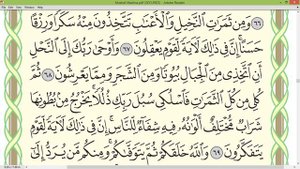 File Edit View Window Help
٦٦ وَمِن ثَمَرَٰتِ ٱلنَّخِيلِ وَٱلْأَعْنَٰبِ تَتَّخِذُونَ مِنْهُ سَكَرًا وَرِزْقًا
حَسَنًا إِنَّ فِى ذَٰلِكَ لَءَايَةً لِّقَوْمٍ يَعْقِلُونَ ٦٧ وَأَوْحَىٰ رَبُّكَ إِلَى ٱلنَّحْلِ
أَنِ ٱتَّخِذِى مِنَ ٱلْجِبَالِ بُيُوتًا وَمِنَ ٱلشَّجَرِ وَمِمَّا يَعْرِشُونَ ٦٨ ثُمَّ
كُلِى مِن كُلِّ ٱلثَّمَرَٰتِ فَٱسْلُكِى سُبُلَ رَبِّكِ ذُلُلًا يَخْرُجُ مِنۢ بُطُونِهَا
شَرَابٌ مُّخْتَلِفٌ أَلْوَٰنُهُۥ فِيهِ شِفَآءٌ لِّلنَّاسِ إِنَّ فِى ذَٰلِكَ لَءَايَةً لِّقَوْمٍ
يَتَفَكَّرُونَ ٦٩ وَٱللَّهُ خَلَقَكُمْ ثُمَّ يَتَوَفَّىٰكُمْ وَمِنكُم مَّن يُرَدُّ إِلَىٰٓ